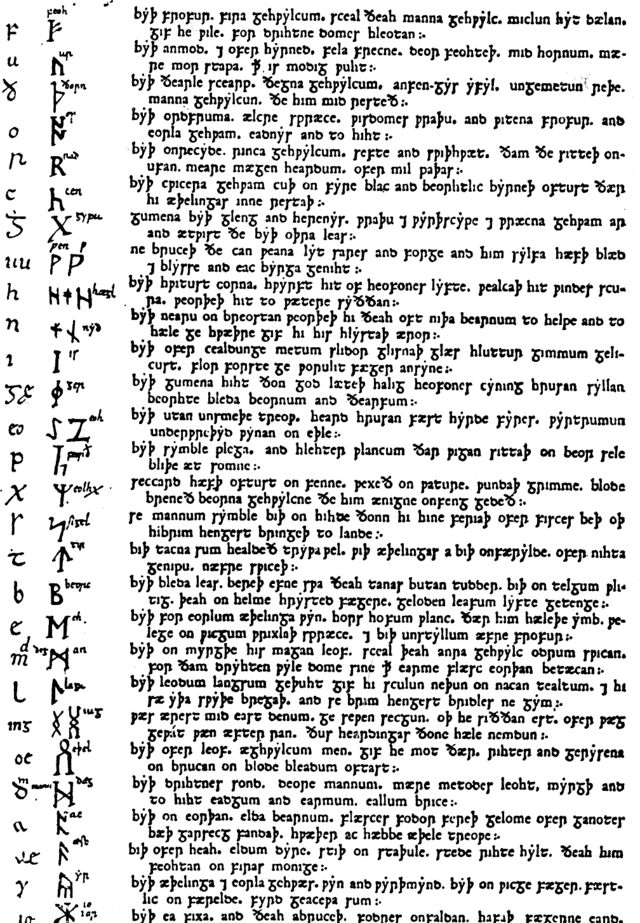 f ᚠ feoh byþ frofur. fira gehwylcum. sceal ðeah manna gehwylc. miclun hyt dælan.
gif he wile. for drihtne domes hleotan:.
u ᚢ ur byþ anmod. ⁊ ofer hyrned. fela frecne. deor feohteþ. mid hornum. mæ-
re mor stapa. ꝥ is modig wuht:.
ð ᚦ ðorn byþ ðearle scearp. ðegna gehwylcum. anfen-gys yfyl. ungemetun reþe.
manna gehwylcun. ðe him mid resteð:.
o ᚩ os byþ ordfruma. ælcre spræce. wisdomes wraþu. and witena frofur. and
eorla gehwam. eadnys and to hiht:.
r ᚱ rad byþ onrecyde. rinca gehwylcum. sefte and swiþhwæt. ðam ðe sitteþ on-
ufan. meare mægen heardum. ofer mil paþas:.
c ᚳ cen byþ cwicera gehwam cuþ on fyre blac and beorhtlic byrneþ oftust ðær
hi æþelingas inne restaþ:.
ᚷ gyfu gumena byþ gleng and herenys. wraþu ⁊ wyrþscype ⁊ wræcna gehwam ar
and ætwist ðe byþ oþra leas:.
uu ᚹ wen ne bruceþ ðe can weana lyt sares and sorge and him sylfa hæfþ blæd
⁊ blysse and eac byrga geniht:.
h ᚻ hægl byþ hwitust corna. hwyrft hit of heofones lyfte. wealcaþ hit windes scu-
ra. weorþeþ hit to wætere syððan:.
n ᚾ nyd byþ nearu on breostan weorþeþ hi ðeah oft niþa bearnum to helpe and to
hæle ge hwæþre gif hi his hlystaþ æror:.
i ᛁ is byþ ofer cealdunge metum slidor glisnaþ glæs hluttur gimmum geli-
cust. flor forste ge woruht fæger ansyne:.
ger byþ gumena hiht ðon god læteþ halig heofones cyning hrusan syllan
beorhte bleda beornum and ðearfum:.
eo eoh byþ utan unsmeþe treow. heard hrusan fæst hyrde fyres. wyrtrumun
underwreþyd wynan on eþle:.
p ᛈ peorð byþ symble plega. and hlehter wlancum ðar wigan sittaþ on beor sele
bliþe æt somne:.
x ᛉ eolhx seccard hæfþ oftust on fenne. wexeð on wature. wundaþ grimme. blode
breneð beorna gehwylcne ðe him ænigne onfeng gedeð:.
s ᛋ sigel se mannum symble biþ on hihte ðonn hi hine feriaþ ofer fisces beþ oþ
hibrim hengest bringeþ to lande:.
t ᛏ tir biþ tacna sum healdeð trywa wel. wiþ æþelingas a biþ onfærylde. ofer nihta
genipu. næfre swiceþ:.
b ᛒ beorc byþ bleda leas. bereþ efne swa ðeah tanas butan tudder. biþ on telgum wli-
tig. þeah on helme hrysted fægere. geloden leafum lyfte getenge:.
e ᛖ eh. byþ for eorlum æþelinga wyn. hors hofum wlanc. ðær him hæleþe ymb. we-
lege on wicgum wrixlaþ spræce. ⁊ biþ unstyllum æfre frofur:.
m ᛗ d an byþ on myrgþe his magan leof. sceal þeah anra gehwylc odrum swican.
for ðam dryhten wyle dome sine ꝥ earme flæsc eorþan betæcan:.
l ᛚ lagu byþ leodum langsum geþuht gif hi sculun neþun on nacan tealtum. ⁊ hi
sæ yþa swyþe bregaþ. and se brim hengest bridles ne gym:.
ing ᛝ ing wæs ærest mid east denum. ge sewen secgun. oþ he siððan est. ofer wæg
gewat wæn æfter ran. ðus heardingas ðone hæle nemdun:.
oe ᛟ eþel byþ ofer leof. æghwylcum men. gif he mot ðær. rihter and gerysena
on brucan on blode bleadum oftast:.
d ᛞ dæg byþ drihtnes sond. deore mannum. mære metodes leoht, myrgþ and
to hiht eadgum and earmum. eallum brice:.
a ᚪ ac byþ on eorþan. elda bearnum. flæsces fodor fereþ gelome ofer ganotes
bæþ garsecg fandaþ. hwæþer ac hæbbe æþele treowe:.
æ ᚫ æsc biþ ofer heah. eldum dyre. stiþ on staþule. stede rihte hylt. ðeah him
feohtan on firas monige:.
y ᚣ yr byþ æþelinga ⁊ eorla gehwæs. wyn and wyrþmynd. byþ on wicge fæger. fæst-
lic on færelde. fyrd geacewa sum:.
io ior byþ ea fixa. and ðeah abruceþ. fodres onfaldan. hafaþ fægerne eard.